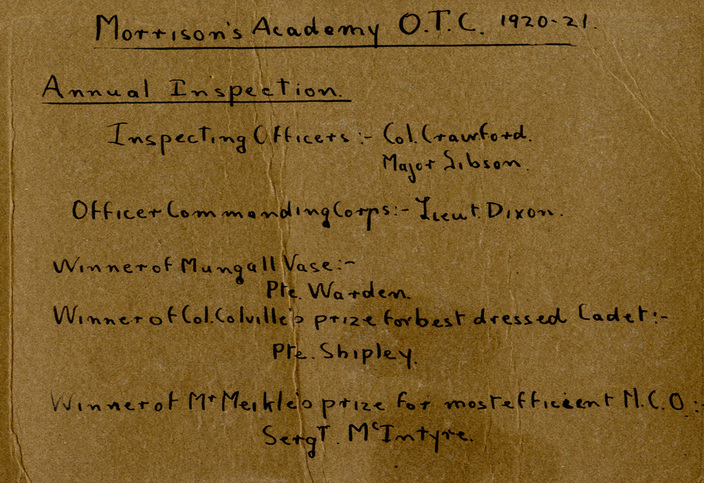 Morrison's Academy O.T.C. 1920-21.
Annual Inspection.
Inspecting Officers:- Col. Crawford.
Major Sibson.
Officer Commanding Corps:- Lieut Dixon.
Winner of Mungall Vase:-
Pte. Warden.
Winner of Col. Colville's prize for best dressed Cadet:-
Pte. Shipley.
Winner of Mr Meikle's prize for most efficient N.C.O.:-
Sergt. McIntyre.